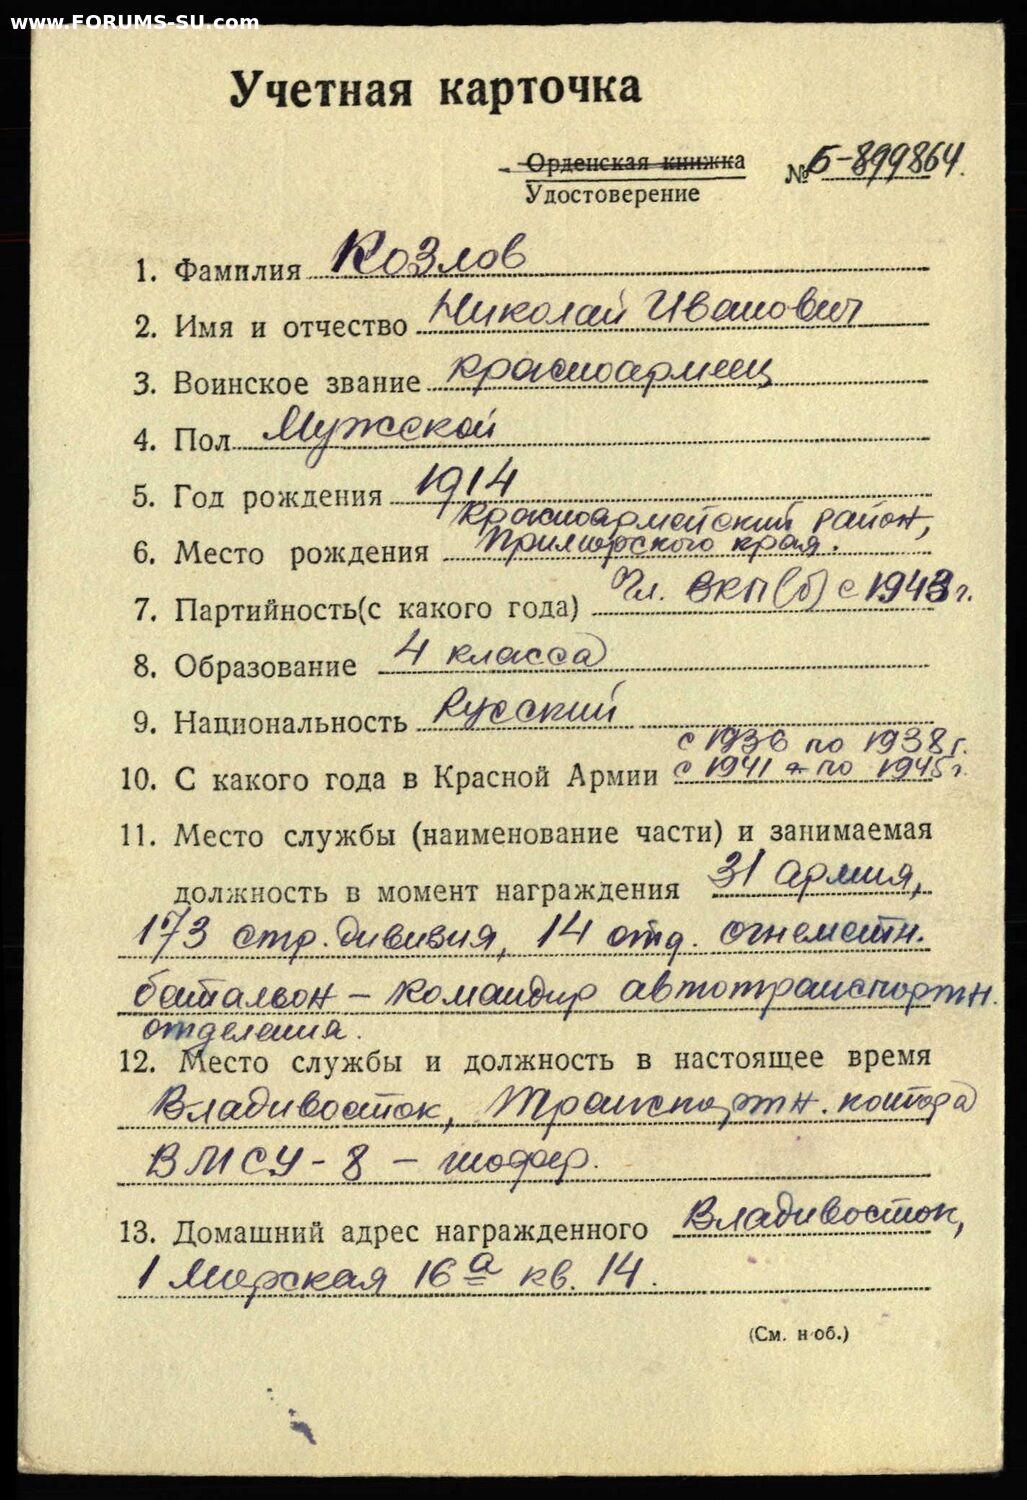 www.FORUMS-SU.com
Учетная карточка
Орденская книжка
Удостоверение № Б-899864.
1. Фамилия Козлов
2. Имя и отчество Николай Иванович
3. Воинское звание красноармеец
4. Пол Мужской
5. Год рождения 1914
Красноармейский район,
6. Место рождения Приморского края.
7. Партийность (с какого года) Чл. ВКП(б) с 1943 г.
8. Образование 4 класса
9. Национальность Русский
с 1936 по 1938 г.
10. С какого года в Красной Армии с 1941 – по 1945 г.
11. Место службы (наименование части) и занимаемая
должность в момент награждения 31 армия,
173 стр. дивизия, 14 отд. огнеметн.
батальон – командир автотранспортн.
отделения.
12. Место службы и должность в настоящее время
Владивосток, Транспортн. контора
ВМСУ-8 – шофер.
13. Домашний адрес награжденного Владивосток,
1 Морская 16а кв. 14.
(См. н об.)